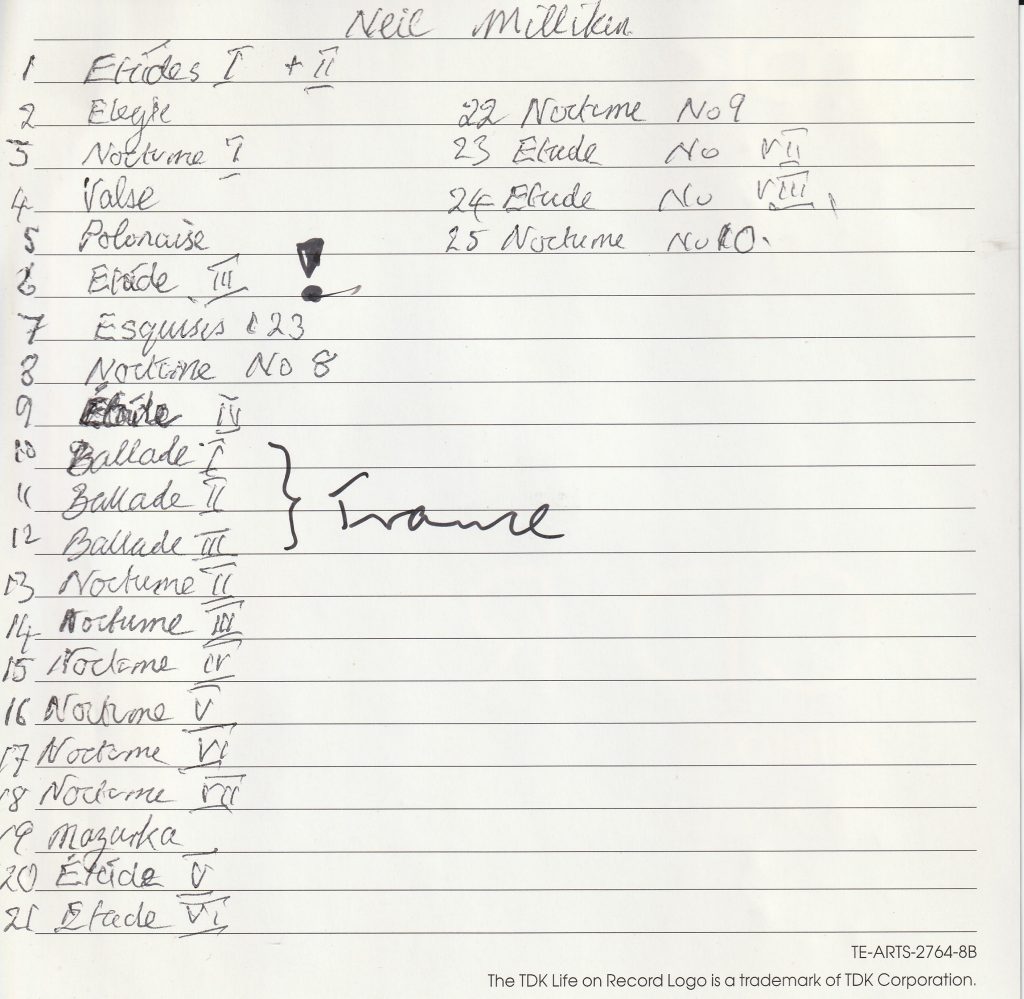 Neil Millikin
1 Etúdes I + II
2 Elegie
3 Nocturne I
4 Valse
5 Polonaise
6 Etúde III !
7 Esquises 123
8 Nocturne No 8
9 Étude IV
10 Ballade I
11 Ballade II
12 Ballade III
13 Nocturne II
14 Nocturne III
15 Nocturne IV
16 Nocturne V
17 Nocturne VI
18 Nocturne VII
19 Mazurka
20 Étúde V
21 Etude VI
22 Nocturne No 9
23 Etude No VII
24 Etude No VIII
25 Nocturne No 10.
TE-ARTS-2764-8B
The TDK Life on Record Logo is a trademark of TDK Corporation.